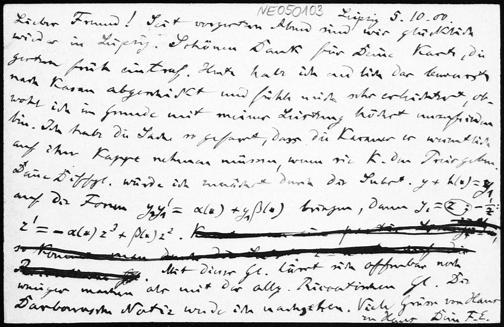 NE050103
Leipzig 5.10.00.
Lieber Freund! Seit vorgestern Abend sind wir glücklich
wieder in Leipzig. Schönen Dank für Deine Karte, die
gestern früh eintraf. Heute habe ich endlich das bewusste
nach Kasan abgeschickt und fühle mich sehr erleichtert, ob-
wohl ich im Grunde mit meiner Leistung höchst unzufrieden
bin. Ich habe die Sache so gefasst, dass die Kasaner es wesentlich
auf ihre Kappe nehmen müssen, wenn sie K. den Preis geben.
Deine Diffgl. würde ich zunächst durch die Subst. y + h(x) = y₁
auf die Form y₁y₁' = α(x) + y₁β(x) bringen, dann y₁ = 1/z
z' = -α(x) z³ + β(x) z².
Mit dieser Gl. lässt sich offenbar noch
weniger machen als mit der allg. Riccatischen Gl. Die
Darbouxsche Notiz werde ich nachsehen. Viele Grüsse von Haus
zu Haus Dein F.E.